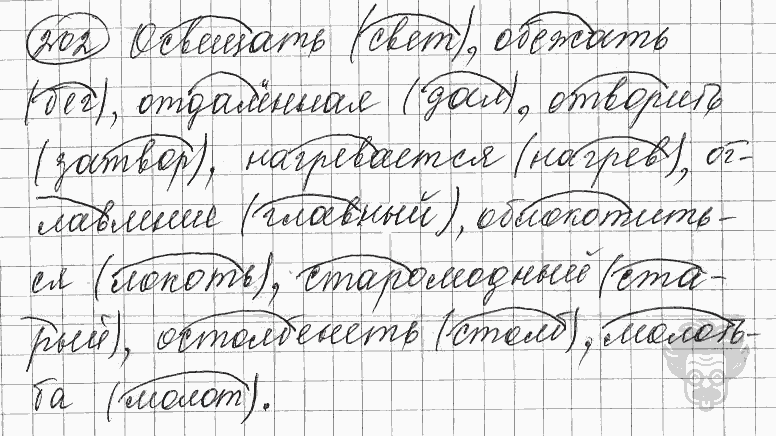 202 Освещать (свет), обежать
(бег), отдалённая (дал), отворить
(затвор), нагревается (нагрев), ог-
лавление (главный), облокотить-
ся (локоть), старомодный (ста-
рый), остолбенеть (столб), молоть-
ба (молот).